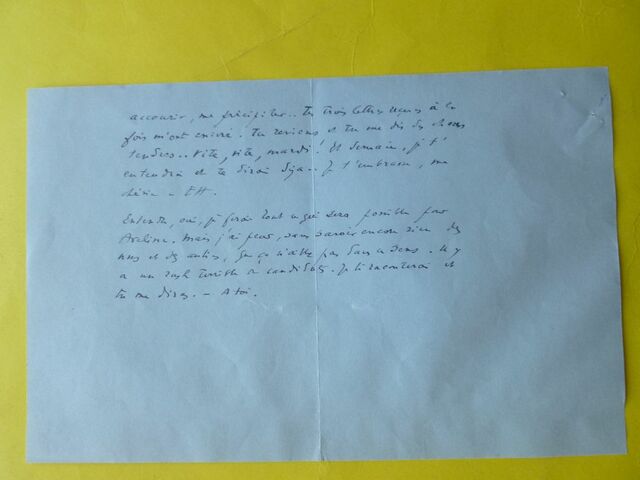 accourir, me précipiter.. Tes trois lettres reçues à la
fois m'ont enivré. Tu reviens et tu me dis des choses
tendres.. Vite, vite, mardi! Et demain, je t'
entendrai et te dirai déjà.. Je t'embrasse, ma
chérie -
Entendu, oui, je ferai tout ce qui sera possible pour
Mais j'ai peur, sans savoir encore rien des
uns et des autres, que ça n'aille pas dans ce sens. Il y
a un rush terrible de candidats. Je te raconterai et
tu me diras. - A toi.